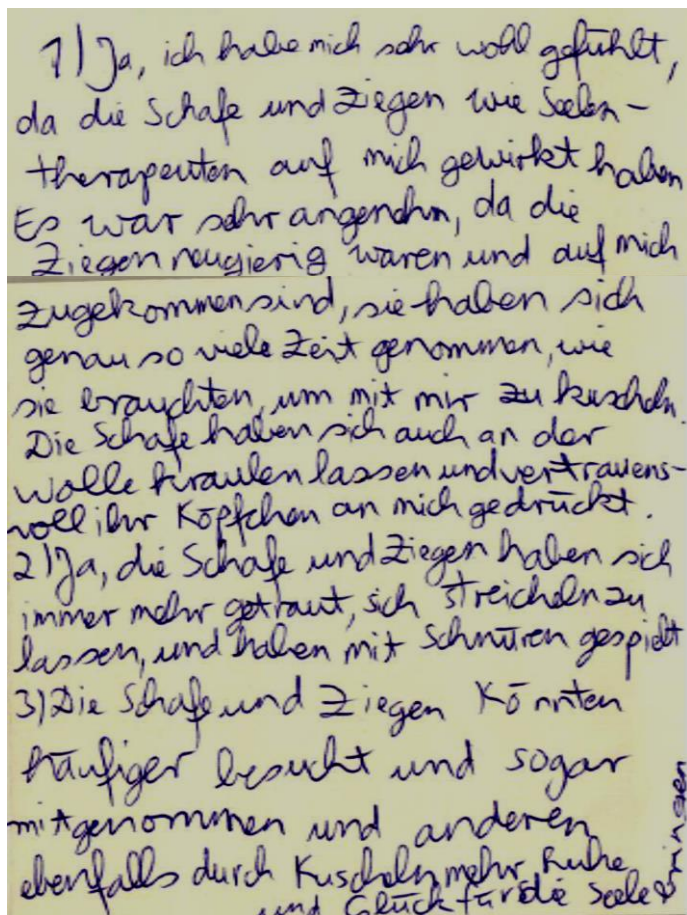 1) Ja, ich habe mich sehr wohl gefühlt,
da die Schafe und Ziegen wie Seelen-
therapeuten auf mich gewirkt haben
Es war sehr angenehm, da die
Ziegen neugierig waren und auf mich
zugekommen sind, sie haben sich
genau so viele Zeit genommen, wie
sie brauchten, um mit mir zu kuscheln.
Die Schafe haben sich auch an der
Wolle kraulen lassen und vertrauens-
voll ihr Köpfchen an mich gedrückt.
2) Ja, die Schafe und Ziegen haben sich
immer mehr getraut, sich streicheln zu
lassen, und haben mit Schnüren gespielt
3) Die Schafe und Ziegen könnten
häufiger besucht und sogar
mitgenommen und anderen
ebenfalls durch Kuscheln mehr Ruhe
und Glück für die Seele